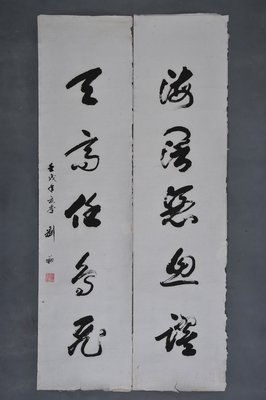 海闊憑魚躍
天高任鳥飛
壬戌年 劉